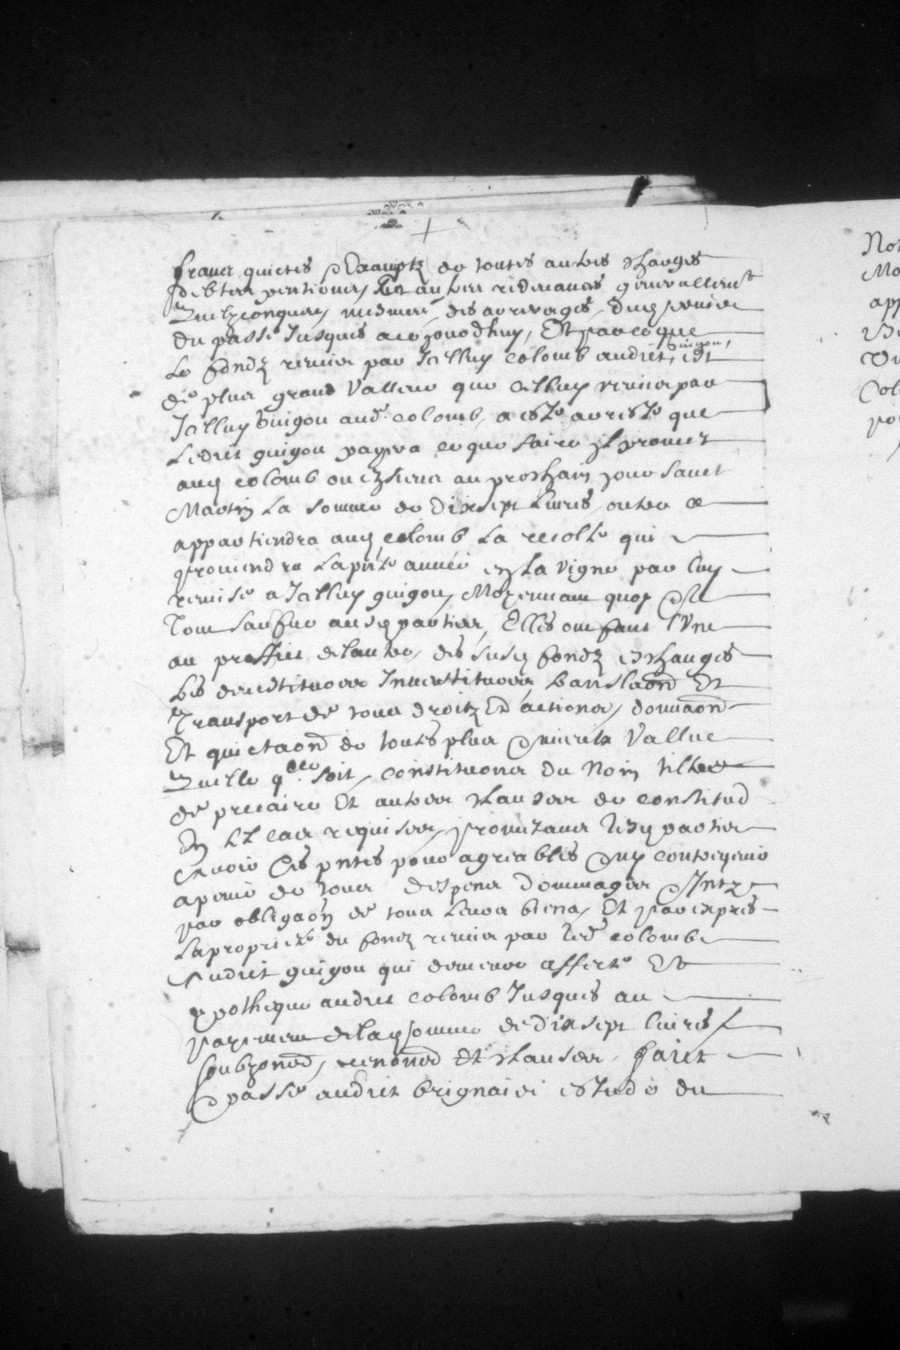 francs quictes & Exampts de toutes autres charges
debtes pentions, Et autres redevances generallemt
Quelzconques, mesmes des arrerages, du service
du passé Jusques a ce jourdhuy, Et parce que
Le fondz remis par Icelluy colomb audict guigou, est
de plus grand Valleur que celluy remis par
Icelluy Guigou aud. colomb, a esté aresté que
Ledict guigou payera ce que faire Il promet
auq colomb ou ez siens au prochain jour sainct
Martin La somme de Dixsept Livres, outre ce
appartiendra auq colomb La recolte qui
proviendra La pnte année en La Vigne par luy
remise a Icelluy guigou, Moyennant quoy
Tout se ausq parties, Elles ont faict l'Une
au proffict de lautre, des susq fondz eschangés
Les devestitures Investitures translaon Et
Transport de tous droitz Et actions, donnaon
Et quictaon de toutes plus Vallue
Quelle q. soit, constitutions du Nom tiltre
de precaire Et autres clauses de constitud
En tel cas requises, promettans lesq parties
avoir Ces pntes pour agreables & ny contrevenir
a peine de tous despens dommages Intz
par obligaon de tous Leurs biens, Et par expres
La proprieté du fondz remis par led colomb
audict guigou qui demeure affecté Et
ypothequé audict colomb Jusques au
payement de laq somme de dixsept livres
soubzond, renond Et clauses, faict
& passé audict brignaies estude du